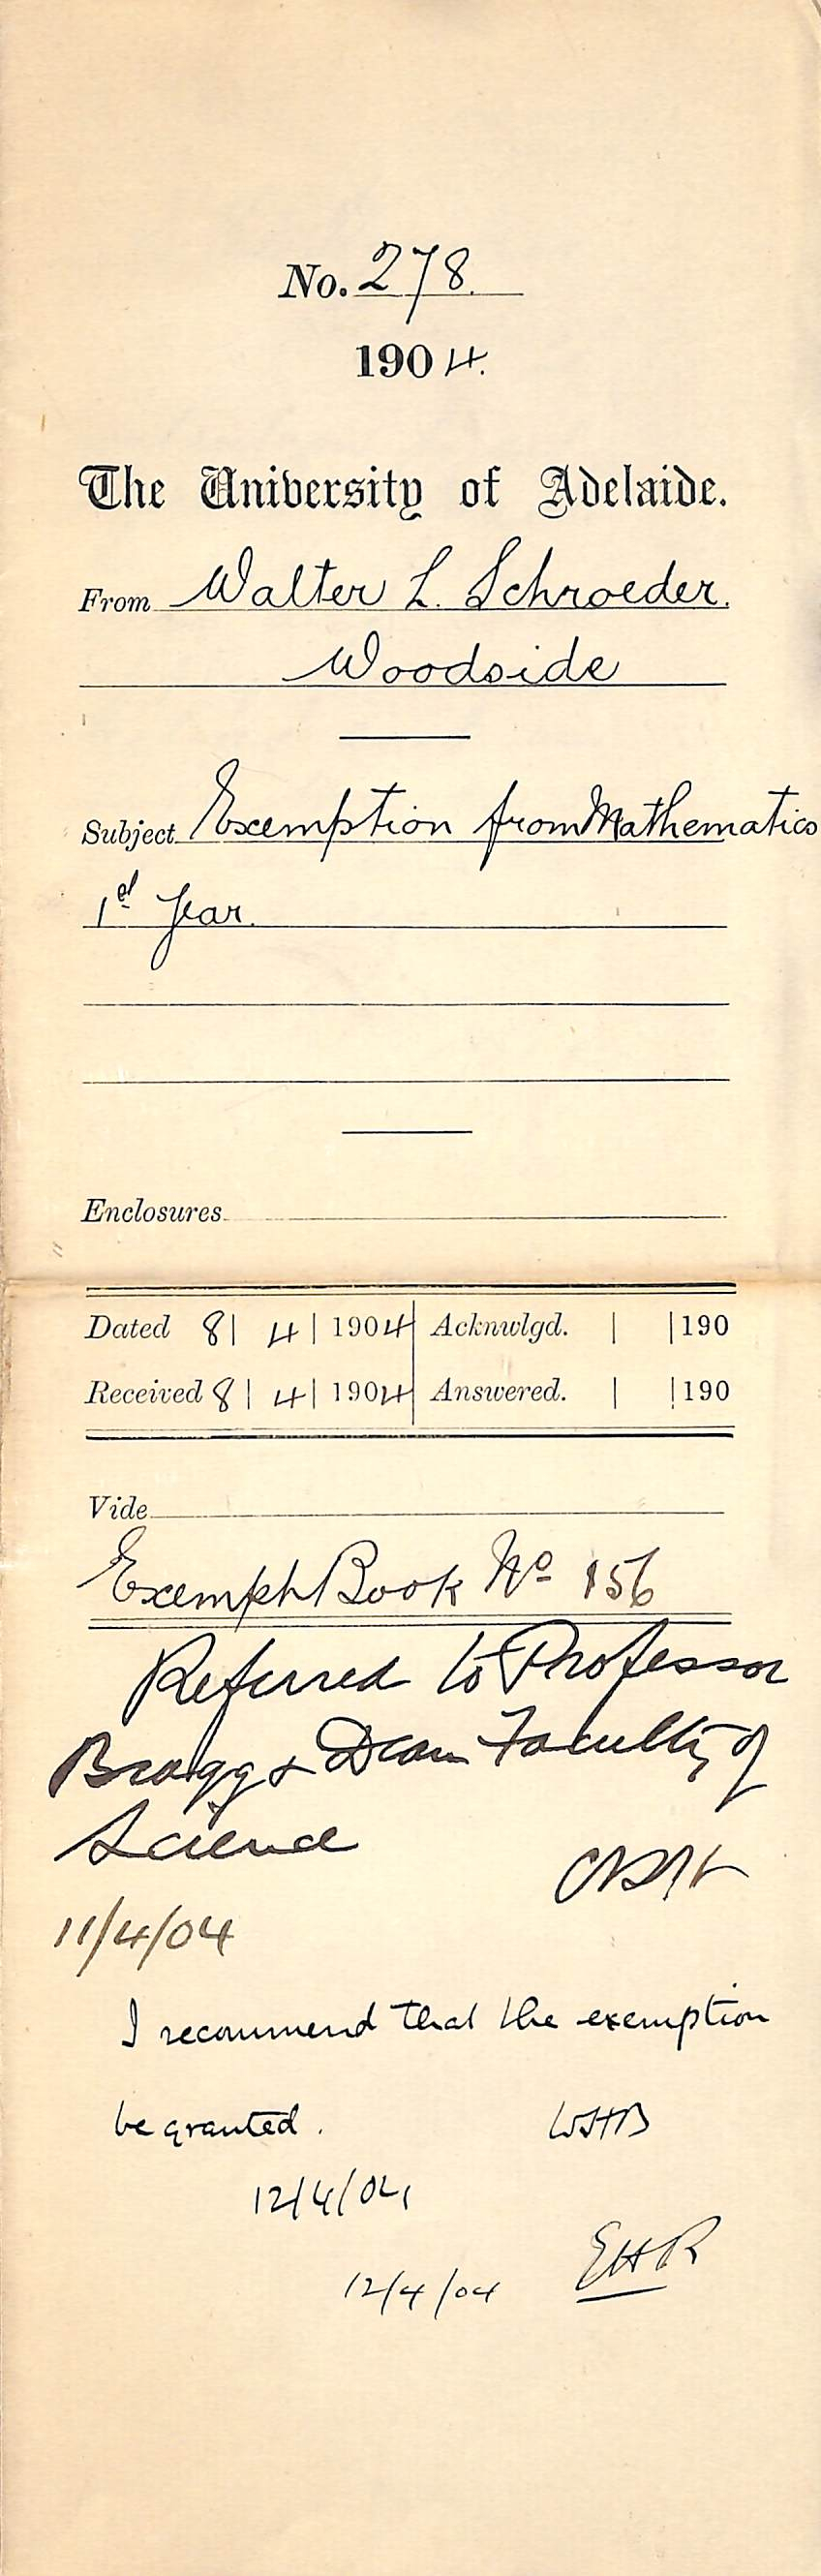 No. 278.
1904.
The University of Adelaide.
From Walter L. Schroeder.
Woodside
Subject Exemption from Mathematics
1st Year.
Enclosures
Dated 8 | 4 | 1904 Acknwlgd. | | 190
Received 8 | 4 | 1904 Answered. | | 190
Vide
Exempt Book No 156
Referred to Professor
Bragg & Dean Faculty of
Science
11/4/04
I recommend that the exemption
be granted. WHB
12/4/04
12/4/04 EHR